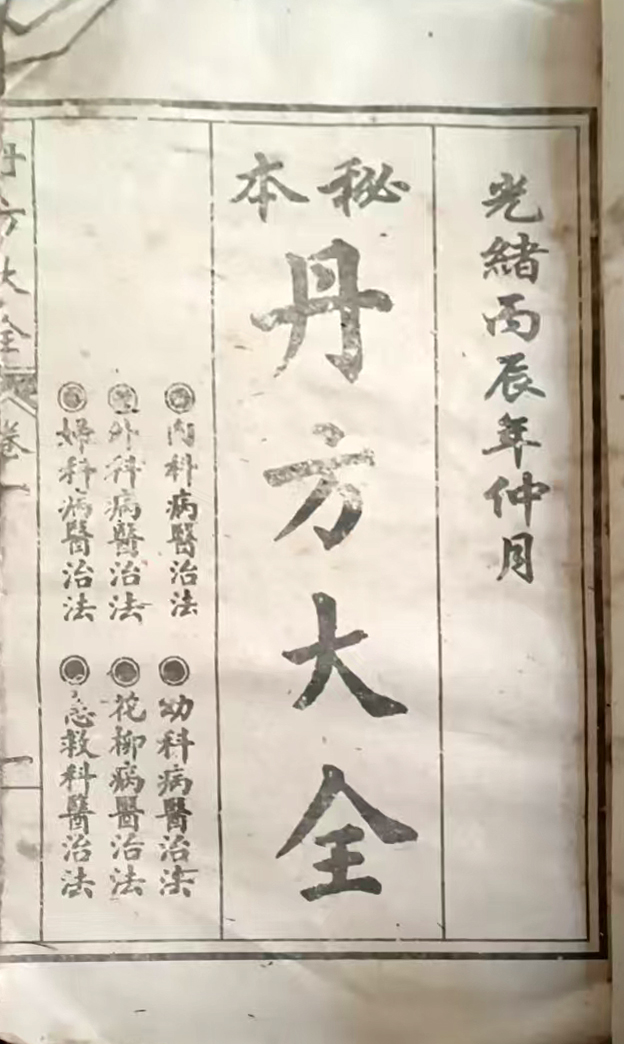 光緒丙辰年仲月
秘本
丹方大全
◎內科病醫治法
◎外科病醫治法
◎婦科病醫治法
◎幼科病醫治法
◎花柳病醫治法
◎急救科醫治法
丹方大全 卷一
一